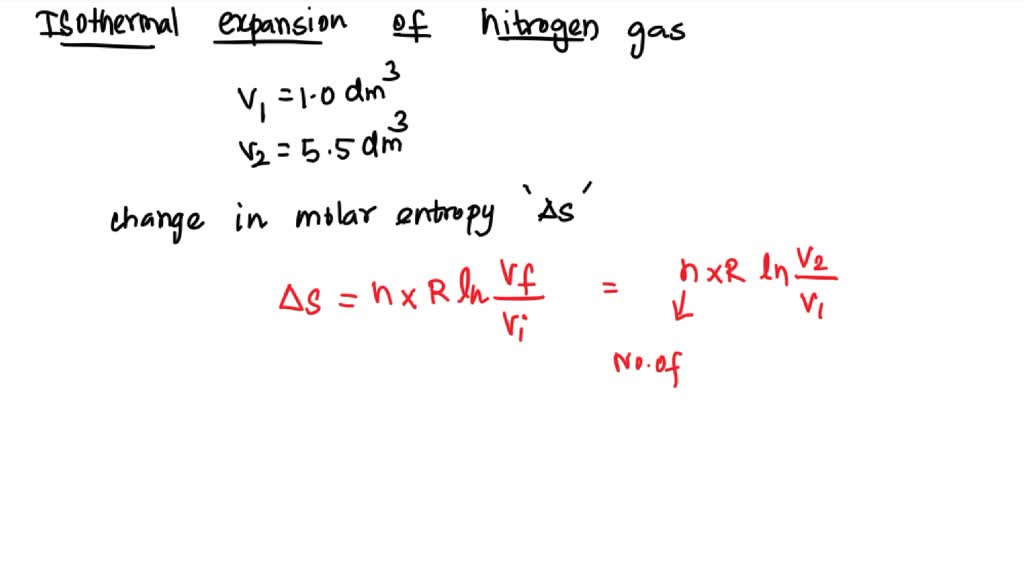 Isothermal expansion of nitrogen gas
V₁ = 1.0 dm³
V₂ = 5.5 dm³
change in molar entropy 'ΔS'
ΔS = n × R ln Vf/Vi = n × R ln V₂/V₁
↓
No. of